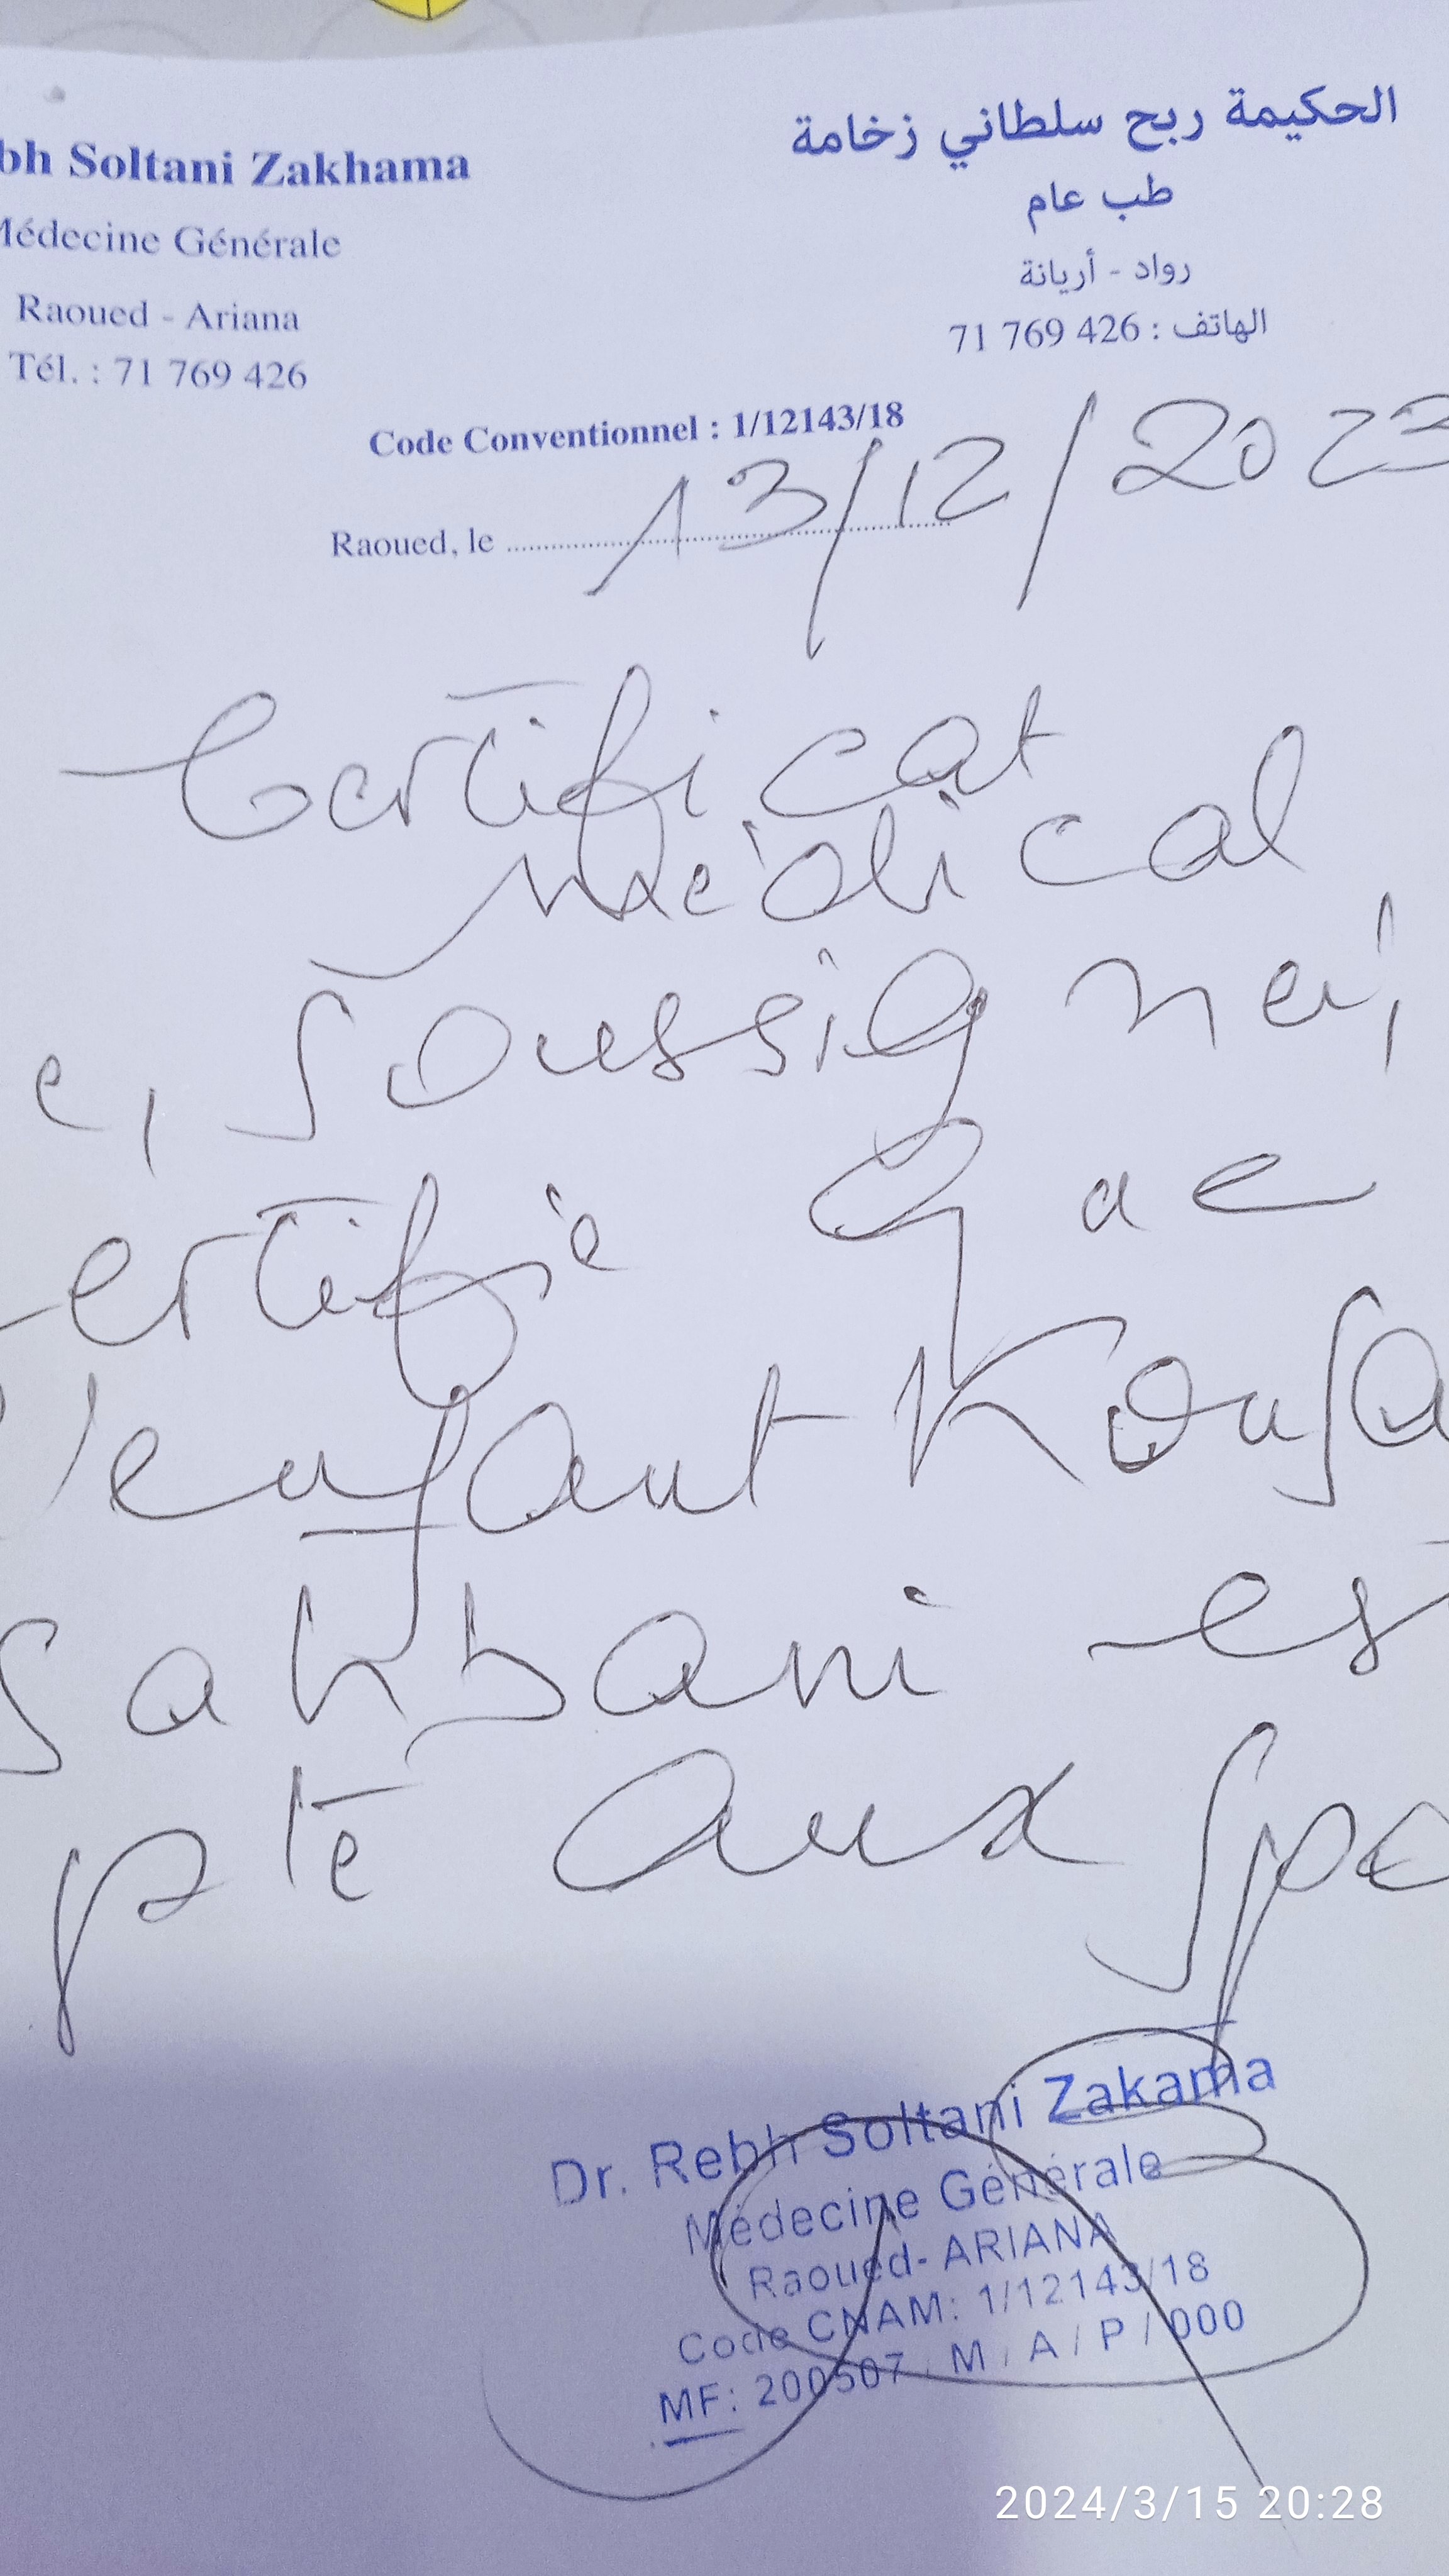 bh Soltani Zakhama
Médecine Générale
Raoued - Ariana
Tél. : 71 769 426
الحكيمة ربح سلطاني زخامة
طب عام
رواد - أريانة
الهاتف : 426 769 71
Code Conventionnel : 1/12143/18
Raoued, le 13/12/2023
Certificat
médical
e, soussigné,
certifie que
l'enfant Kousa
Sahbani es
pte aux spo
Dr. Rebh Soltani Zakama
Médecine Générale
Raoued- ARIANA
Code CNAM: 1/12143/18
MF: 200507 / M / A / P / 000
2024/3/15 20:28